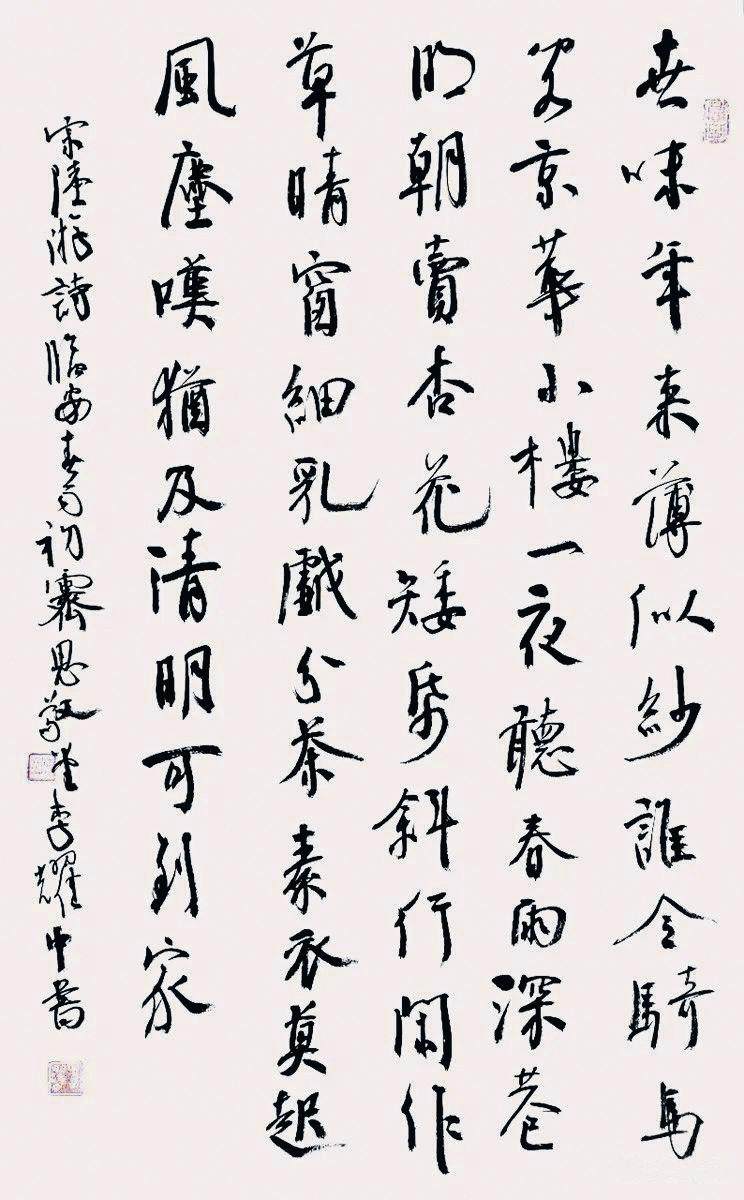 世味年来薄似紗誰令騎馬
客京華小樓一夜聽春雨深巷
明朝賣杏花矮帋斜行閑作
草晴窗細乳戲分茶素衣莫起
風塵嘆猶及清明可到家
宋陸游詩臨安春雨初霽思敬堂李耀中書